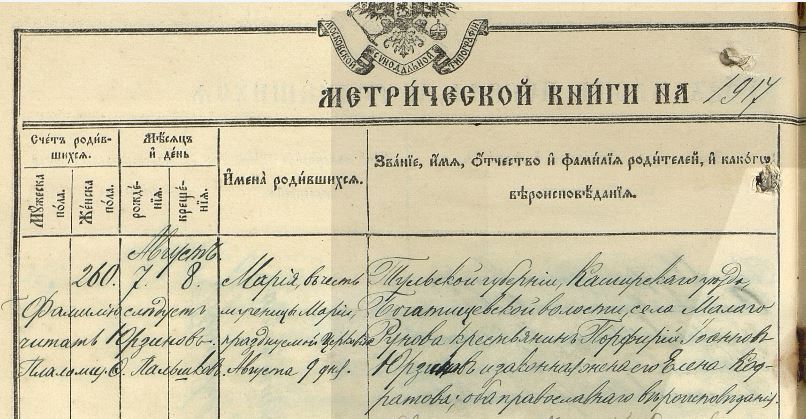 МОСКОВСКОЙ СѴНОДАЛЬНОЙ ТИПОГРАФІИ
МЕТРИ́ЧЕСКОЙ КНИ́ГИ НА 1917
Сче́тъ роди́вшихся.
Мѣ́сяцъ и҆ де́нь
И҆мена̀ роди́вшихся.
Зва́ніе, и҆́мя, ѻ҆́тчество и҆ фами́лїя роди́телей, и҆ како́гѡ
вѣроисповѣ́данїя.
Му́жеска по́ла.
Же́нска по́ла.
рожде́нїя.
креще́нїя.
Августъ
260. 7. 8. Марія, въ честь
мученицы Маріи,
празднуемой Церковію
Августа 9 дня.
Тульской губерніи, Каширскаго уезда,
Богатищевской волости, села Малаго
Рунова крестьянинъ Порфирій Іоанновъ
Юрзиновъ и законная жена его Елена Код-
ратова; оба православнаго вѣроисповѣданія.
Фамилію слѣдуетъ
читать Юрзиновъ.
Псаломщ. С. Пальшковъ